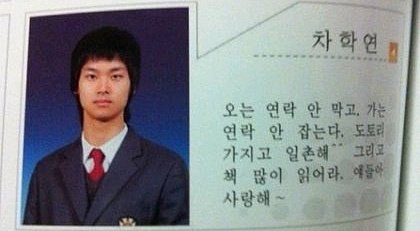 차학연
오는 연락 안 막고, 가는
연락 안 잡는다. 도토리
가지고 일촌해^^ 그리고
책 많이 읽어라. 얘들아
사랑해~